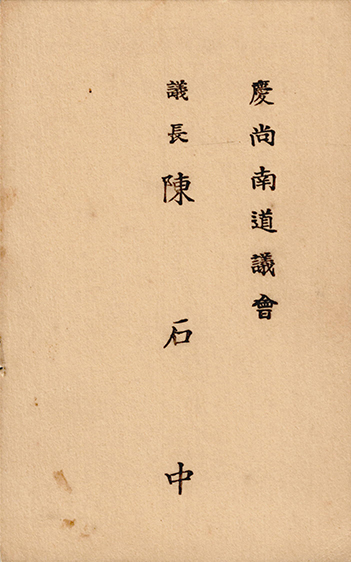 慶尚南道議會
議長 陳石中